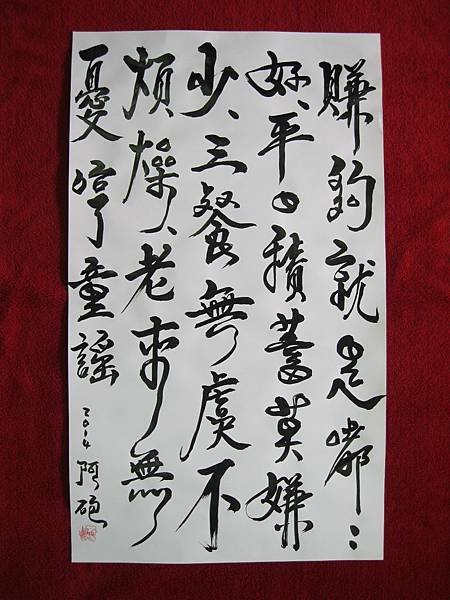 賺夠就是嘟：
好、平日積蓄莫嫌
少、三餐無虞不
煩燥、老來無
憂哼童謠
2014 阿砲